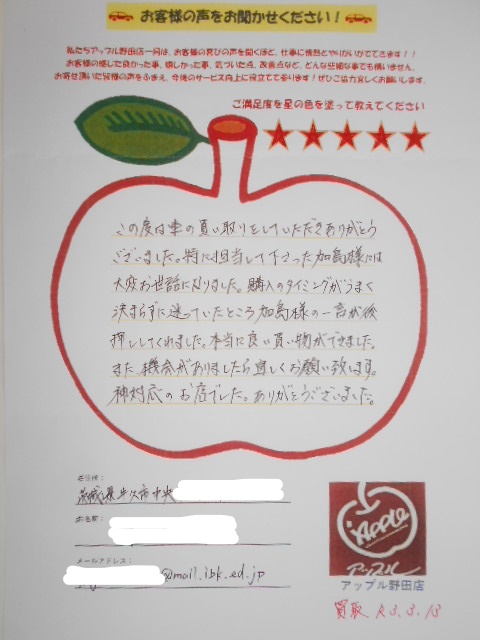 お客様の声をお聞かせください！
私たちアップル野田店一同は、お客様の喜びの声を聞くほど、仕事に情熱とやりがいがでてきます！！
お客様の感じた良かった事、嬉しかった事、気づいた点、改善点など、どんな些細な事でも構いません。
お寄せ頂いた皆様の声をふまえ、今後のサービス向上に役立てて参ります！ぜひご協力宜しくお願いします。
ご満足度を星の色を塗って教えてください
この度は車の買い取りをしていただきありがとう
ございました。特に担当して下さった加島様には
大変お世話になりました。購入のタイミングがうまく
決まらずに迷っていたところ加島様の一言が後
押ししてくれました。本当に良い買い物ができました。
また、機会がありましたら宜しくお願い致します。
神対応のお店でした。ありがとうございました。
ご住所：
茨城県牛久市中央
お名前：
メールアドレス：
@mail.ibk.ed.jp
Apple
アップル
アップル野田店
買取 R3.3.13